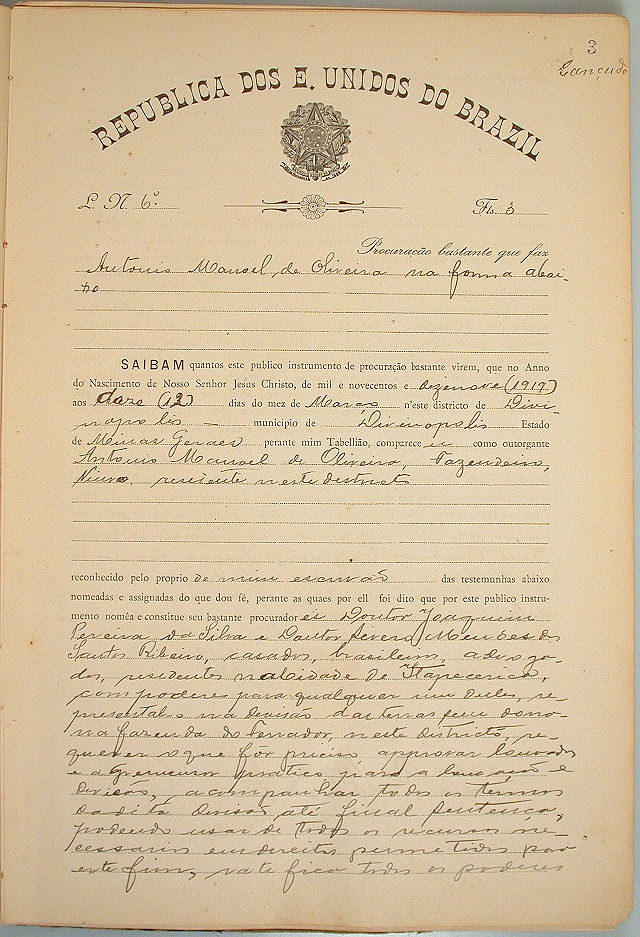 3
Lançado
REPUBLICA DOS E. UNIDOS DO BRAZIL
L. N. 6º
Fls. 3
Procuração bastante que faz
Antonio Manoel de Oliveira na forma abai-
xo
SAIBAM quantos este publico instrumento de procuração bastante virem, que no Anno
do Nascimento de Nosso Senhor Jesus Christo, de mil e novecentos e dezenove (1919)
aos doze (12) dias do mez de Março n'este districto de Divi-
nopolis municipio de Divinopolis Estado
de Minas Geraes perante mim Tabellião, comparece u como outorgante
Antonio Manoel de Oliveira, Fazendeiro,
Viuvo, residente neste districto
reconhecido pelo proprio de mim escrivão das testemunhas abaixo
nomeadas e assignadas do que dou fé, perante as quaes por ell foi dito que por este publico instru-
mento nomêa e constitue seu bastante procurador es Doutor Joaquim
Pereira da Silva e Doutor Severo Mendes dos
Santos Ribeiro, casados, brasileiros, advoga-
dos, residentes na Cidade de Itapecerica,
com poderes para qualquer um delles, re-
presental-o na divisão das terras sem dono
na fazenda do Ferrador, neste districto, re-
querer o que fôr preciso, approvar louvados
e o Agrimensor pratico para a louvação e
divisão, acompanhar todos os termos
da dita divisão até final sentença,
podendo usar de todos os recursos ne-
cessarios em direito permettidos para
este fim, ratifica todos os poderes